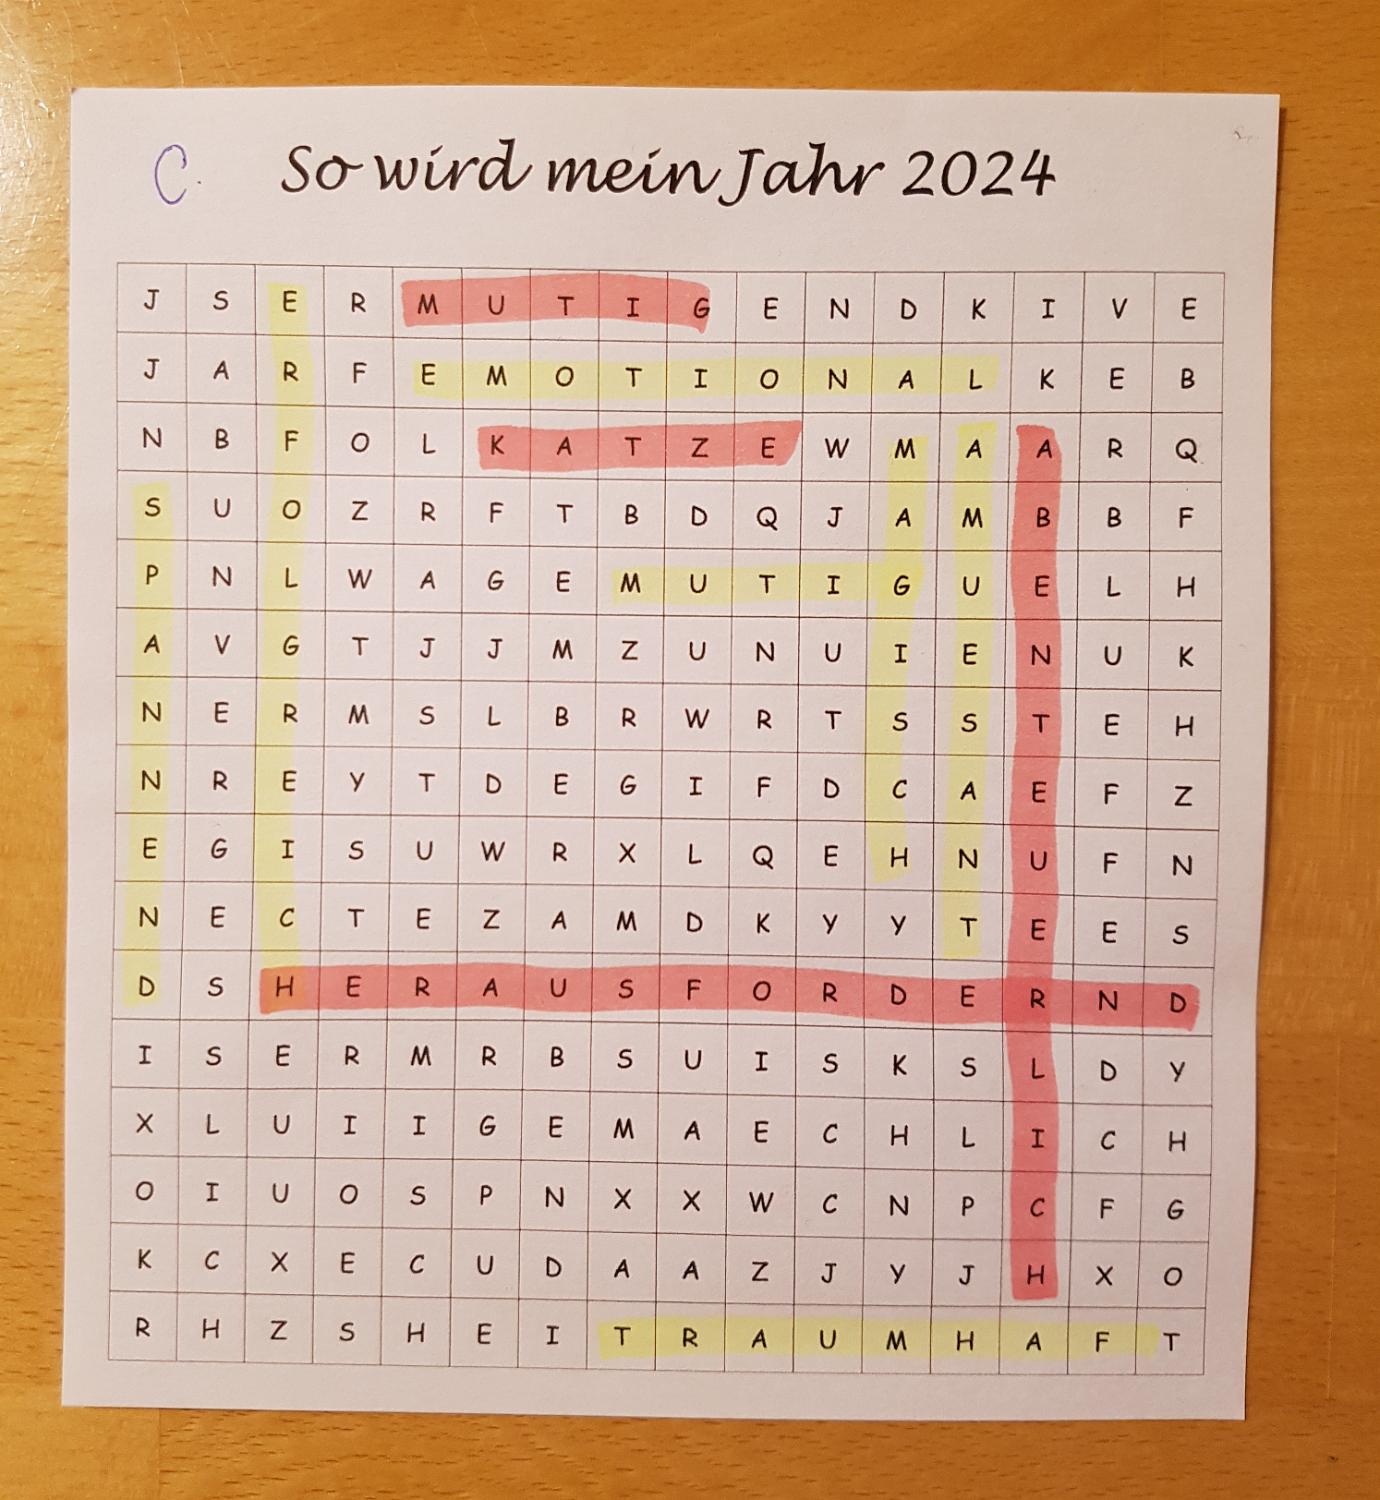 C. So wird mein Jahr 2024
J S E R M U T I G E N D K I V E
J A R F E M O T I O N A L K E B
N B F O L K A T Z E W M A A R Q
S U O Z R F T B D Q J A M B B F
P N L W A G E M U T I G U E L H
A V G T J J M Z U N U I E N U K
N E R M S L B R W R T S S T E H
N R E Y T D E G I F D C A E F Z
E G I S U W R X L Q E H N U F N
N E C T E Z A M D K Y Y T E E S
D S H E R A U S F O R D E R N D
I S E R M R B S U I S K S L D Y
X L U I I G E M A E C H L I C H
O I U O S P N X X W C N P C F G
K C X E C U D A A Z J Y J H X O
R H Z S H E I T R A U M H A F T